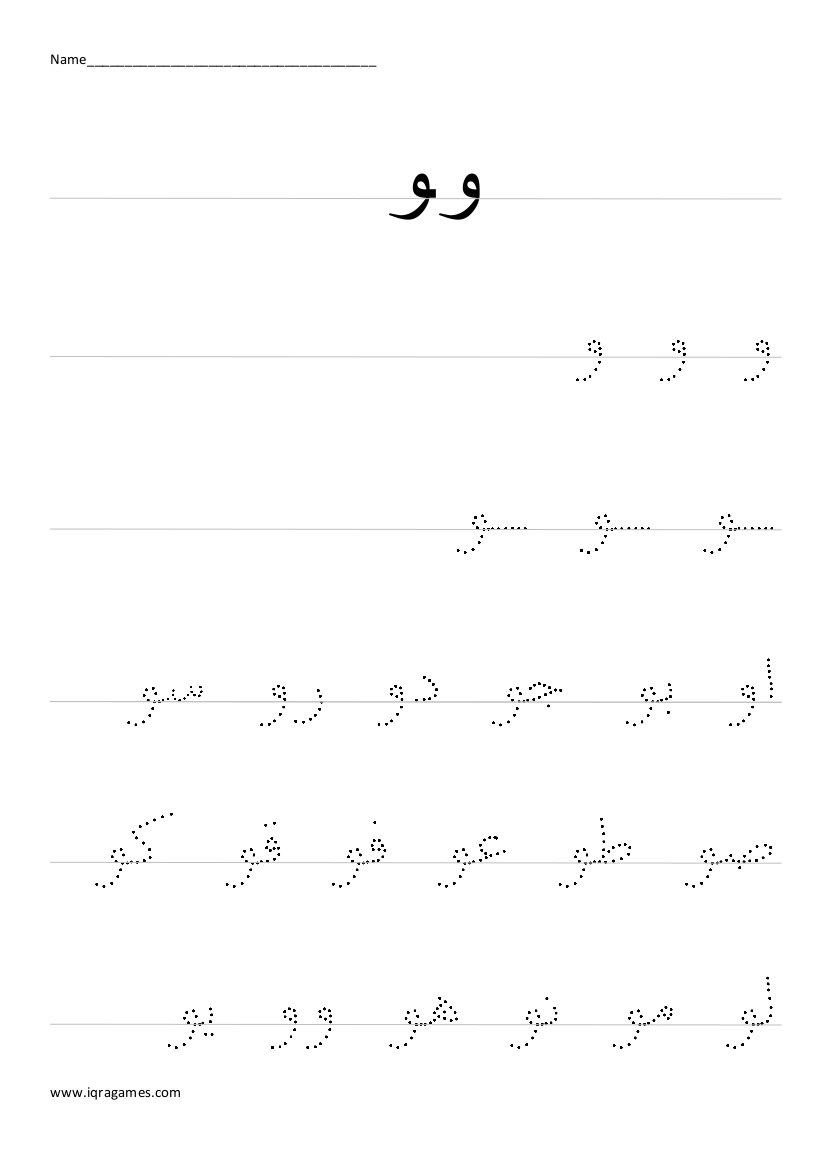 Name______________________________________
و ـو
و و و
ـو ـو ـو
او بو جو دو رو سو
صو طو عو فو قو كو
لو مو نو هو وو يو
www.iqragames.com